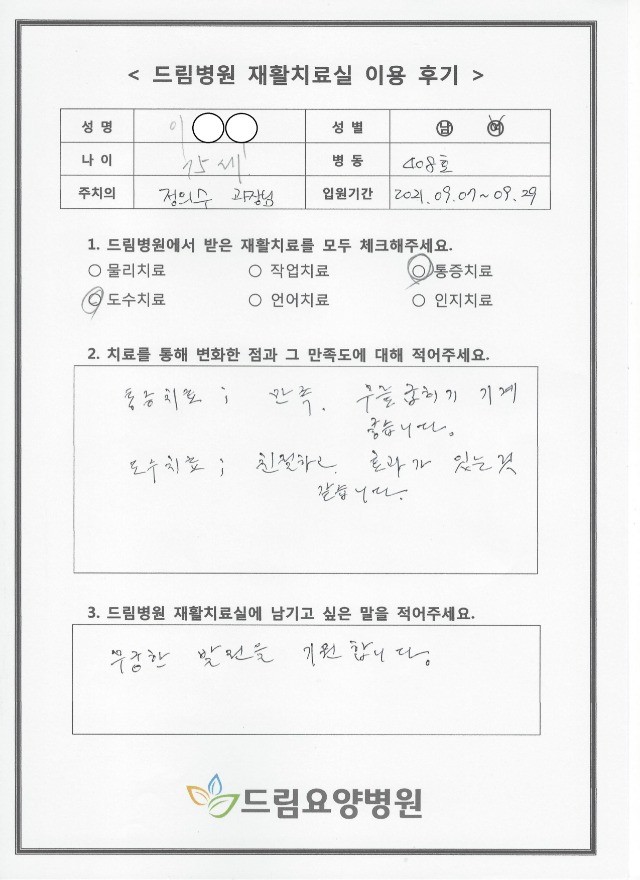 < 드림병원 재활치료실 이용 후기 >
성 명 이 성 별 남 여
나 이 75세 병 동 408호
주치의 정의수 과장님 입원기간 2021.09.07~09.29
1. 드림병원에서 받은 재활치료를 모두 체크해주세요.
○ 물리치료 ○ 작업치료 ○ 통증치료
○ 도수치료 ○ 언어치료 ○ 인지치료
2. 치료를 통해 변화한 점과 그 만족도에 대해 적어주세요.
통증치료 ; 만족. 무릎 굽히기 기계
좋습니다.
도수치료 ; 친절하고 효과가 있는것
같습니다.
3. 드림병원 재활치료실에 남기고 싶은 말을 적어주세요.
무궁한 발전을 기원합니다.
드림요양병원